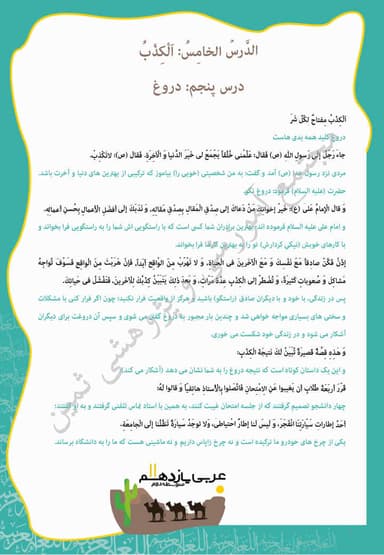 الدَّرسُ الخامِسُ: اَلْکِذْبُ
درس پنجم: دروغ
الکِذْبُ مِفتاحٌ لِکُلِّ شَرٍّ
دروغ کلید همه بدی هاست
جاءَ رَجُلٌ إلی رَسولِ اللهِ (ص) فَقالَ: عَلِّمْنی خُلُقاً یَجْمَعُ لی خَیرَ الدُّنیا وَ الْآخِرَةِ. فَقالَ (ص): لاتَکْذِبْ.
مردی نزد رسول خدا (ص) آمد و گفت: به من شخصیتی (خوبی را) بیاموز که ترکیبی از بهترین های دنیا و آخرت باشد.
حضرت (علیه السلام) فرمود: دروغ نگو.
وَ قالَ الْإمامُ عَلیٌّ (ع): خَیرُ إخوانِكَ مَنْ دَعاكَ إلی صِدْقِ الْمَقالِ بِصِدْقِ مَقالِهِ، وَ نَدَبَكَ إلی أفضَلِ الْأعمالِ بِحُسنِ أعمالِهِ.
و امام علی علیه السلام فرموده اند: بهترین برادران شما کسی است که با راستگویی اش شما را به راستگویی فرا بخواند و
با کارهای خوبش (نیکی کردارش) تو را به بهترین کارها فرا بخواند
إذَنْ فَکُنْ صادِقاً مَعَ نَفْسِكَ وَ مَعَ الْآخَرینَ فی الحَیاةِ، وَ لا تَهْرُبْ مِنَ الْواقِعِ أبَداً، فَإنْ هَرَبْتَ مِنَ الْواقِعِ فَسَوفَ تُواجِهُ
مَشاکِلَ وَ صُعوباتٍ کَثیرَةً، وَ تُضْطَرُّ إلَی الْکِذْبِ عِدَّةَ مَرّاتٍ، وَ بَعدَ ذلِكَ یَتَبَیَّنُ کِذْبُكَ لِلْآخَرینَ، فَتَفْشَلُ فی حَیاتِكَ.
پس در زندگی، با خود و با دیگران صادق (راستگو) باشید و هرگز از واقعیت فرار نکنید؛ چون اگر فرار کنی با مشکلات
و سختی های بسیاری مواجه خواهی شد و چندین بار مجبور به دروغ گفتن می شوی و سپس آن دروغت برای دیگران
آشکار می شود و در زندگی خود شکست می خوری.
وَ هٰذِهِ قِصَّةٌ قَصیرَةٌ تُبَیِّنُ لَكَ نَتیجَةَ الْکِذْبِ:
و این یک داستان کوتاه است که نتیجه دروغ را به شما نشان می دهد (آشکار می کند.)
قَرَّرَ أربَعَةُ طُلّابٍ أنْ یَغیبوا عَنِ الْاِمْتِحانِ فَاتَّصَلوا بِالْاُستاذِ هاتِفیّاً وَ قالوا لَهُ:
چهار دانشجو تصمیم گرفتند که از جلسه امتحان غیبت کنند، به همین با استاد تماس تلفنی گرفتند و به او گفتند:
أحَدُ إطاراتِ سَیّارَتِنا انْفَجَرَ، وَ لَیسَ لَنا إطارٌ احْتیاطی، وَ لا توجَدُ سَیّارَةٌ تَنْقُلُنا إلَی الْجامِعَةِ.
یکی از چرخ های خودرو ما ترکیده است و نه چرخ زاپاس داریم و نه ماشینی هست که ما را به دانشگاه برساند.
عربی یازدهم